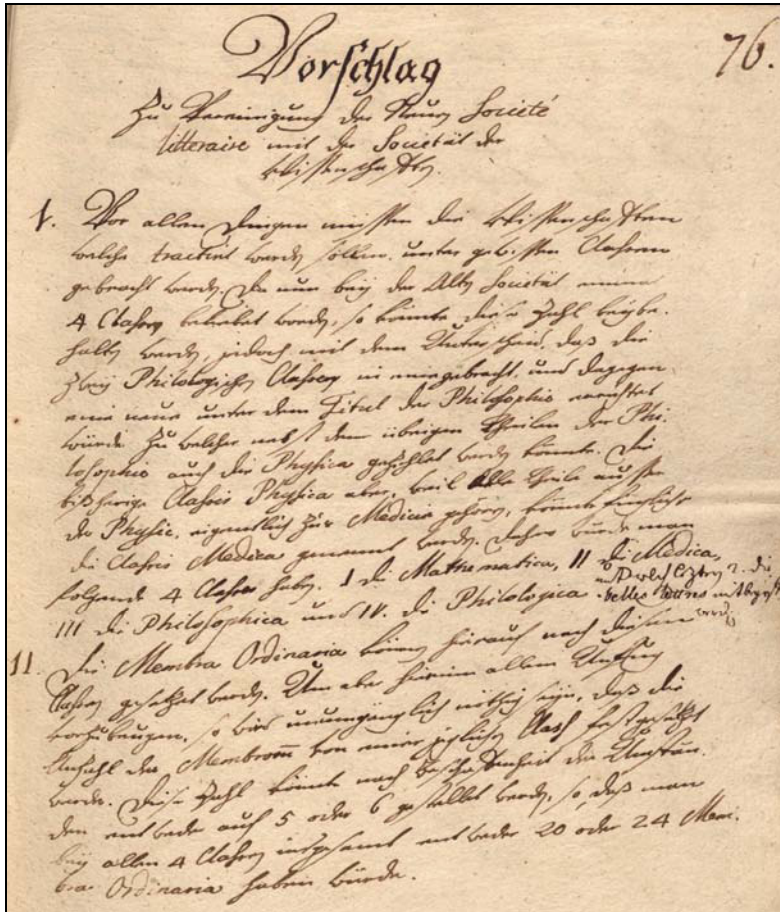 76.
Vorschlag
Zu Vereinigung der Neuen Societé
litteraire mit der Societät der
Wissenschafften.
I. Vor allen Dingen müssen die Wissenschafften
welche tractirt werden sollen, unter gewissen Classen
gebracht werden. Da nun bey der Alten Societät
4 Classen beliebet worden, so könnte diese Zahl beybe-
halten werden, jedoch mit dem Unterscheid, daß die
zwey Philologischen Classen in eine gebracht, und dagegen
eine neue unter dem Titul der Philosophie errichtet
würde zu welcher nebst den übrigen Theilen der Phi-
losophie auch die Physica gezehlet werden könnte. Die
bißherige Classis Physica aber, weil alle Theile ausser
der Physic, eigentlich zur Medicin gehören, könnte füglich
die Classis Medica genennt werden. Daher würde man
folgende 4 Classen haben. I die Mathematica, II die Medica,
III die Philosophica und IV. die Philologica
belles lettres mit begriffen
werden
II. Die Membra Ordinaria können hierauf nach diesen
Classen gesetzet werden. Um aber hierinn allem Unfug
vorzubeugen, so wird unumgänglich nöthig seyn, daß die
Anzahl der Membrorum von einer jeglichen Class festgesetzt
werde. Diese Zahl könnte nach Beschaffenheit der Umstän-
den entweder auf 5 oder 6 gestellet werden, so, daß man
bey allen 4 Classen insgesamt entweder 20 oder 24 Mem-
bra Ordinaria haben würde.